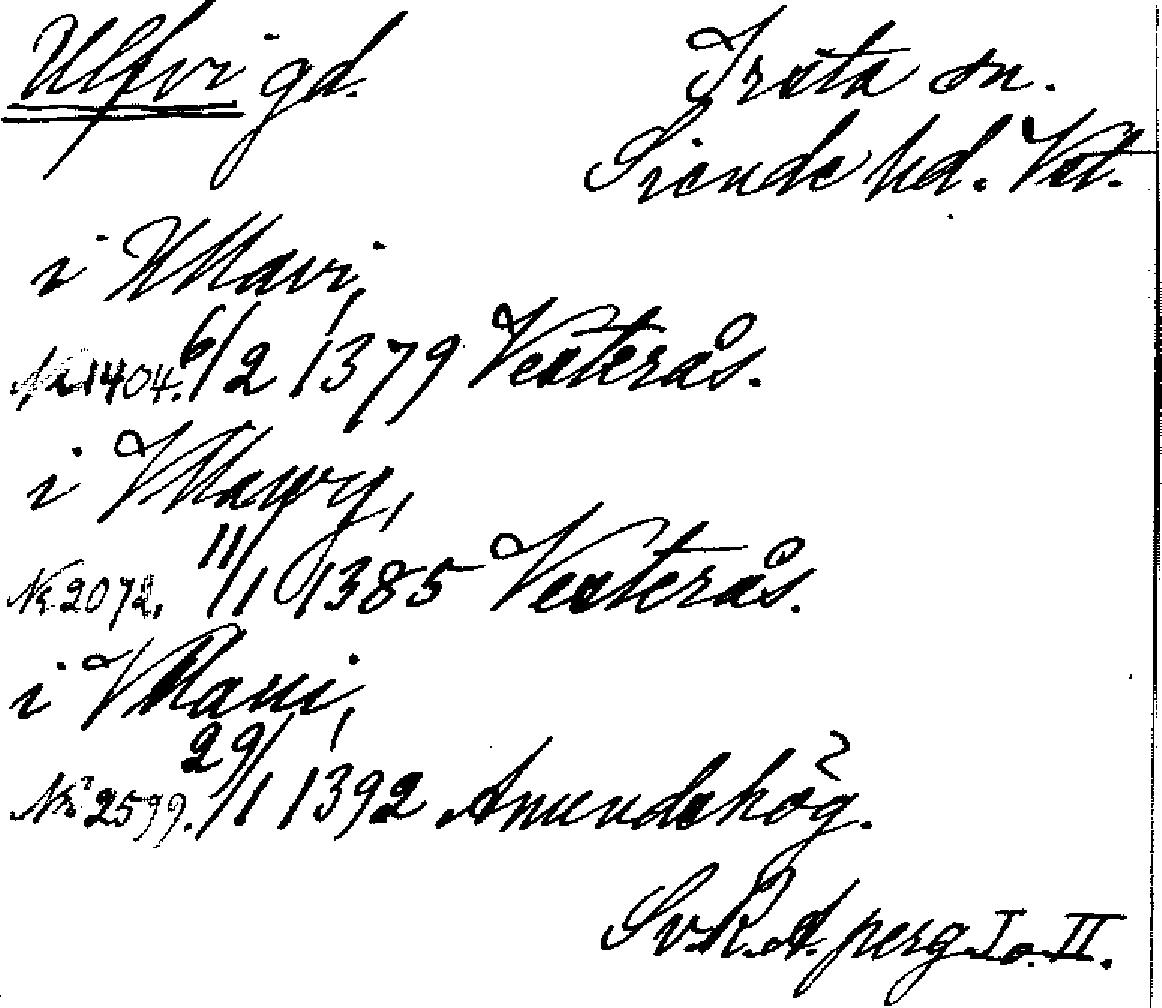 Ulfvi gd.
Irsta sn.
Siende hd. Vst.
i Ullavi,
No 1404. 6/2 1379 Vesterås.
i Vllawy,
No 2072. 11/1 1385 Vesterås.
i Vllaui,
No 2599. 29/1 1392 Amundahög.
Sv. R. A. perg I o. II.